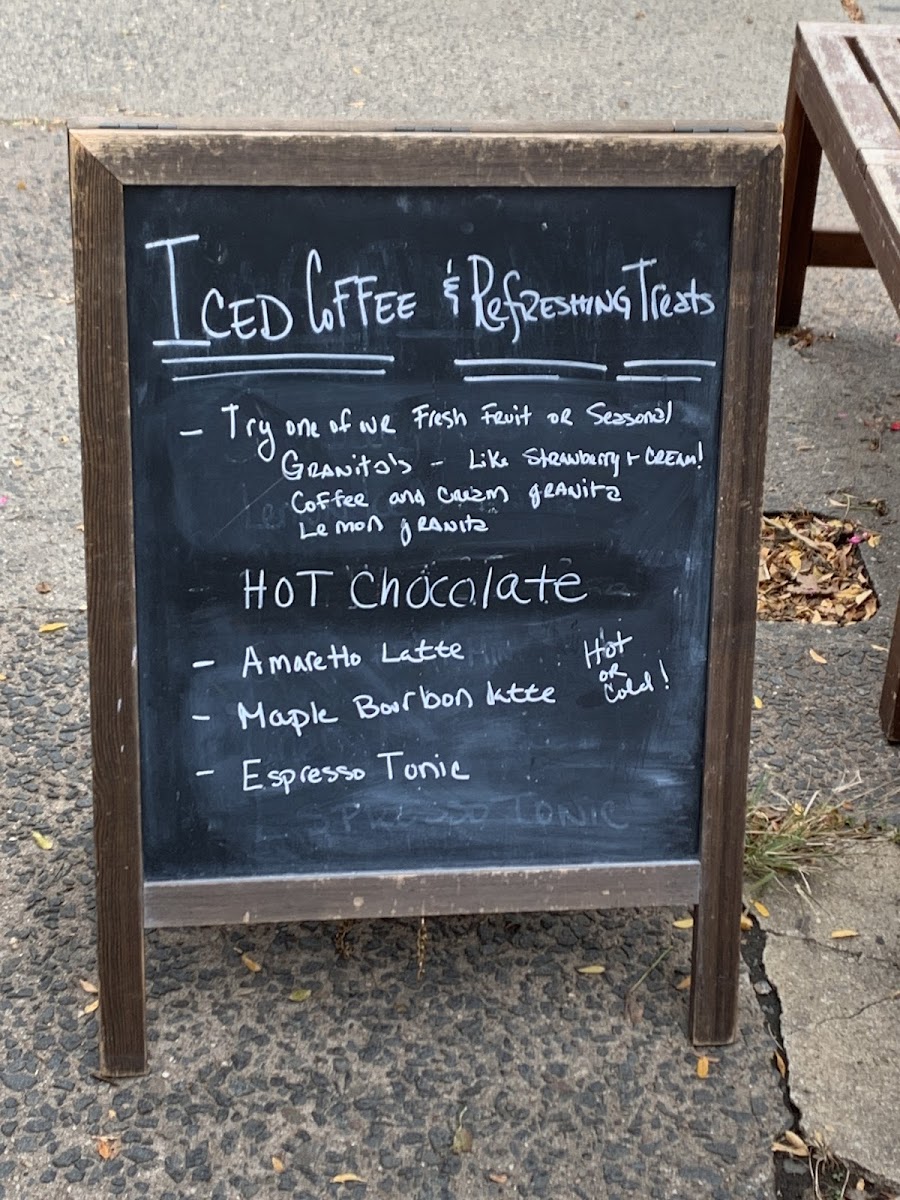 Iced Coffee & Refreshing Treats
- Try one of our Fresh Fruit or Seasonal
Granita's - Like Strawberry + Cream!
Coffee and Cream granita
Lemon granita
HOT Chocolate
- Amaretto Latte
Hot
or
Cold!
- Maple Bourbon latte
- Espresso Tonic
ESPRESSO TONIC